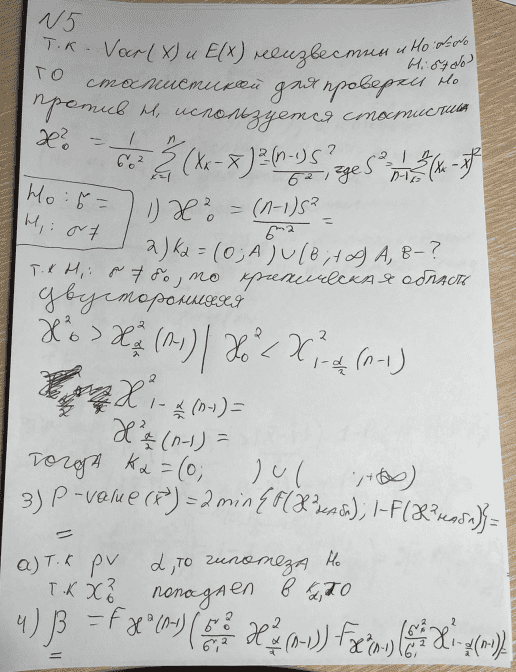 N5
Т.к - Var(X) и E(X) неизвестны и H₀: σ=σ₀
H₁: σ≠σ₀
то статистикой для проверки H₀
против H₁ используется статистика
χ²₀ = 1/σ₀² Σⁿₖ₌₁ (Xₖ - X̄)² = (n-1)S²/σ², где S² = 1/(n-1) Σⁿₖ₌₁ (Xₖ - X̄)²
H₀: σ =
H₁: σ ≠
1) χ²₀ = (n-1)S²/σ² =
2) Kα = (0; A) ∪ (B; +∞) A, B - ?
т.к H₁: σ ≠ σ₀, то критическая область
двусторонняя
χ²₀ > χ²_{α/2} (n-1) | χ²₀ < χ²_{1-α/2} (n-1)
χ²_{1-α/2} (n-1) =
χ²_{α/2} (n-1) =
тогда Kα = (0; ) ∪ ( ; +∞)
3) P-value(x⃗) = 2 min{F(χ²набл); 1-F(χ²набл)} =
=
а) т.к pv α, то гипотеза H₀
т.к χ²₀ попадает в Kα, то
4) β = F_{χ²(n-1)} (σ₀²/σ₁² χ²_{α/2} (n-1)) - F_{χ²(n-1)} (σ₀²/σ₁² χ²_{1-α/2} (n-1)) =
=